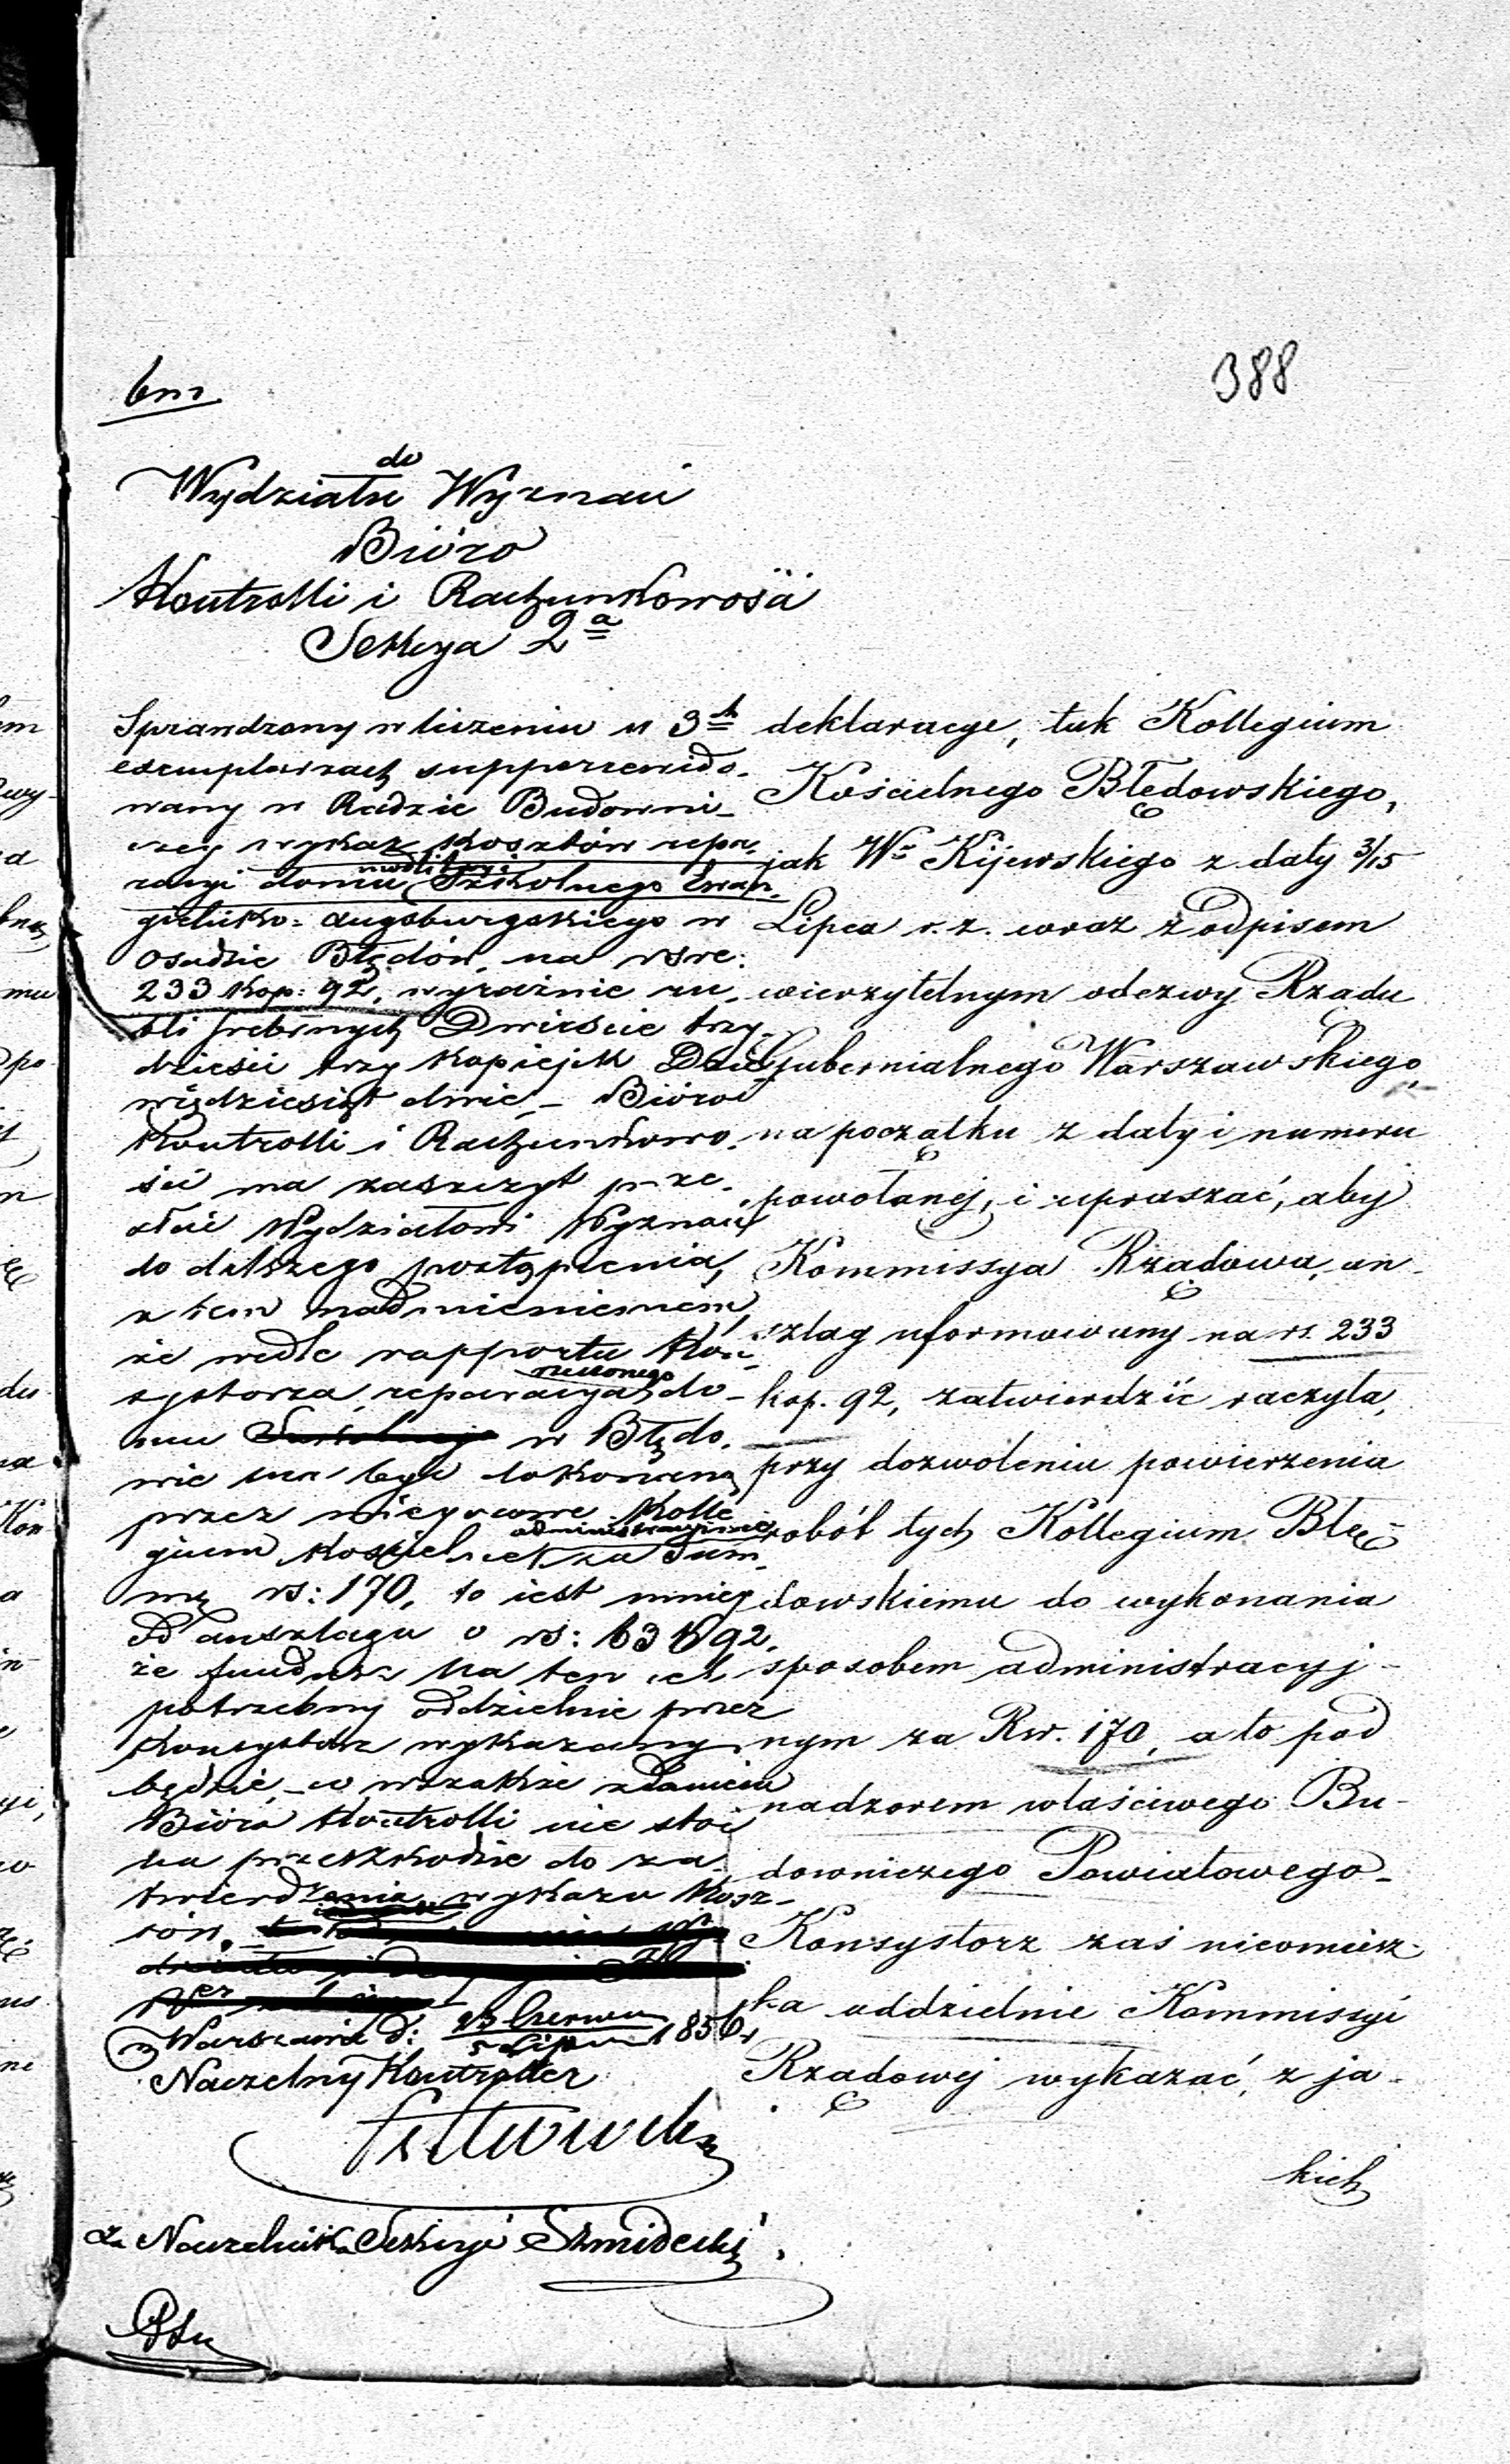 388
do
Wydziału Wyznań
Bióro
Kontrolli i Rachunkowości
Sekcya 2a
Sprawdzony w liczeniu w 3ch
exemplarzach superrewido-
wany w Radzie Budowni-
czej wykaz kosztów repa-
racyi domu modlitwy Szkolnego Ewan-
gielicko-augsburgskiego w
osadzie Błędów, na rsre:
233 kop: 92, wyraźnie ru-
bli srebrnych Dwieście trzy-
dzieści trzy kopiejek Dzie-
więdziesiąt dwie, – Bióro
Kontrolli i Rachunkowo-
ści ma zaszczyt prze-
słać Wydziałowi Wyznań
do dalszego postąpienia,
z tem nadmienieniem,
że wedle rapportu Kon-
systorza, reparacya rzeczonego do-
mu w Błędo-
wie ma być dokonaną
przez miejscowe Kolle-
gium kościelne administracyjnie za Sum-
mę rs: 170, to iest mniej
od anszlagu o rs: 63 k 92,
że fundusz na ten cel
potrzebny oddzielnie przez
Konsystorz wykazany
będzie, – co wszakże zdaniem
Bióra Kontrolli nie stoi
na przeszkodzie do za-
twierdzenia wykazu kosz-
tów.
w Warszawie d: 23 Czerwca / 5 Lipca 1856 r
Naczelny Kontroller
za Naczelnika Sekcyi Szmidecki
deklaracye, tak Kollegium
Kościelnego Błędowskiego,
jak Wo Kijewskiego z daty 3/15
Lipca r. z. wraz z odpisem
wierzytelnym odezwy Rządu
Gubernialnego Warszawskiego
na początku z daty i numeru
powołanej, i upraszać, aby
Kommissya Rządowa, an-
szlag uformowany na rs. 233
kop. 92, zatwierdzić raczyła,
przy dozwoleniu powierzenia
robót tych Kollegium Błę-
dowskiemu do wykonania
sposobem administracyj-
nym za Rsr. 170, a to pod
nadzorem właściwego Bu-
downiczego Powiatowego –
Konsystorz zaś nieomiesz-
ka oddzielnie Kommissyi
Rządowej wykazać, z ja-
kich